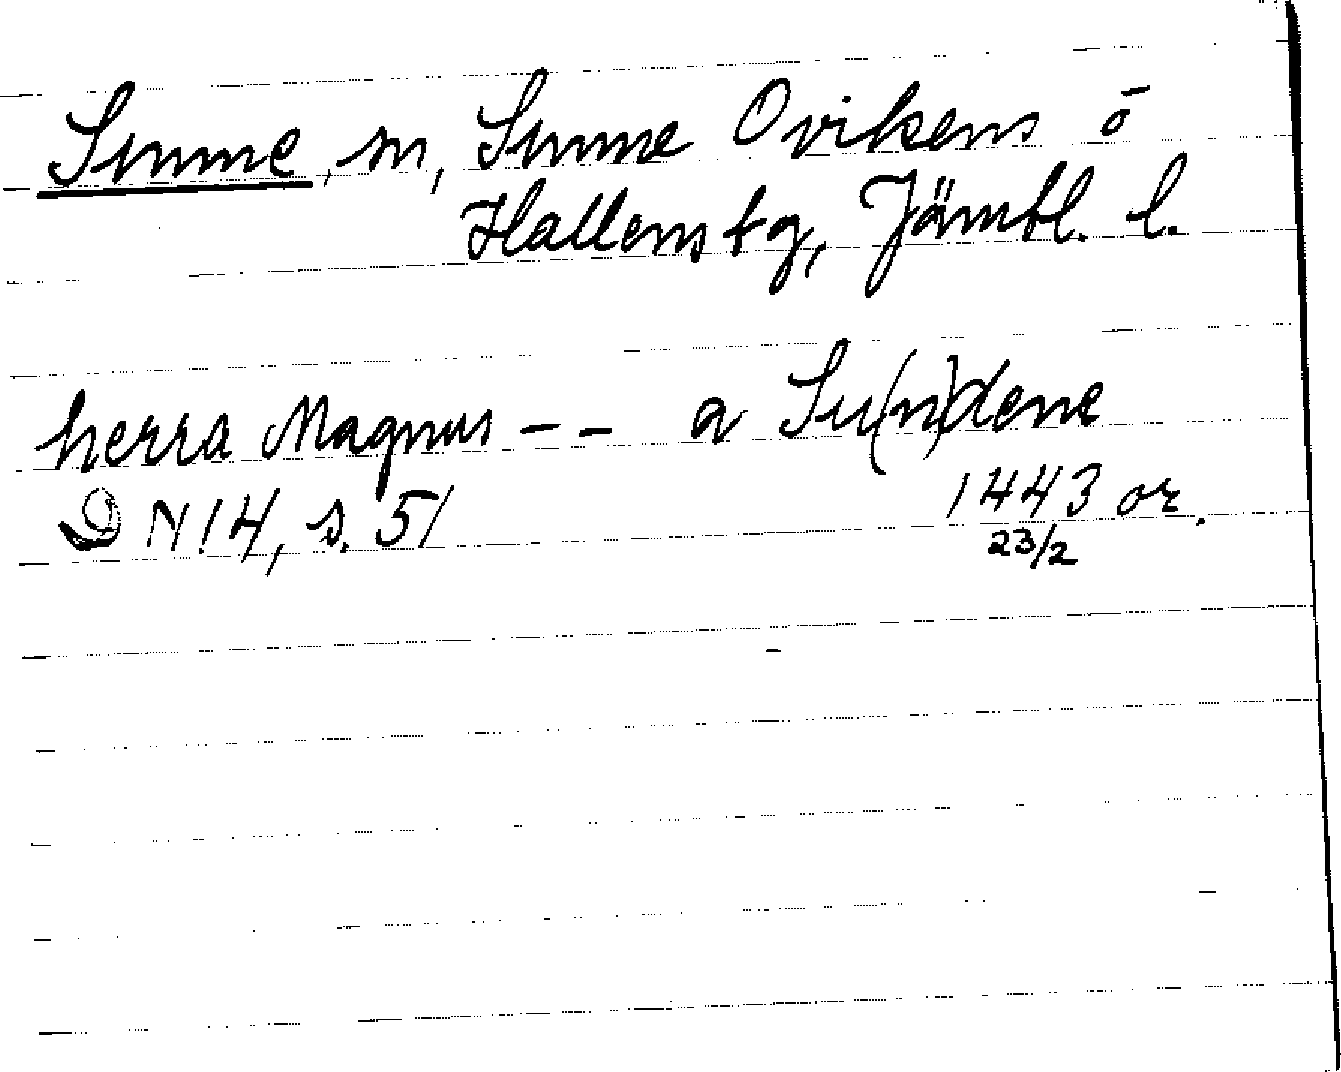 Sunne, sn, Sunne Ovikens o
Hallens tg, Jämtl. l.
herra Magnus -- a Su(n)dene
DN 14, s. 51 1443 or.
23/2